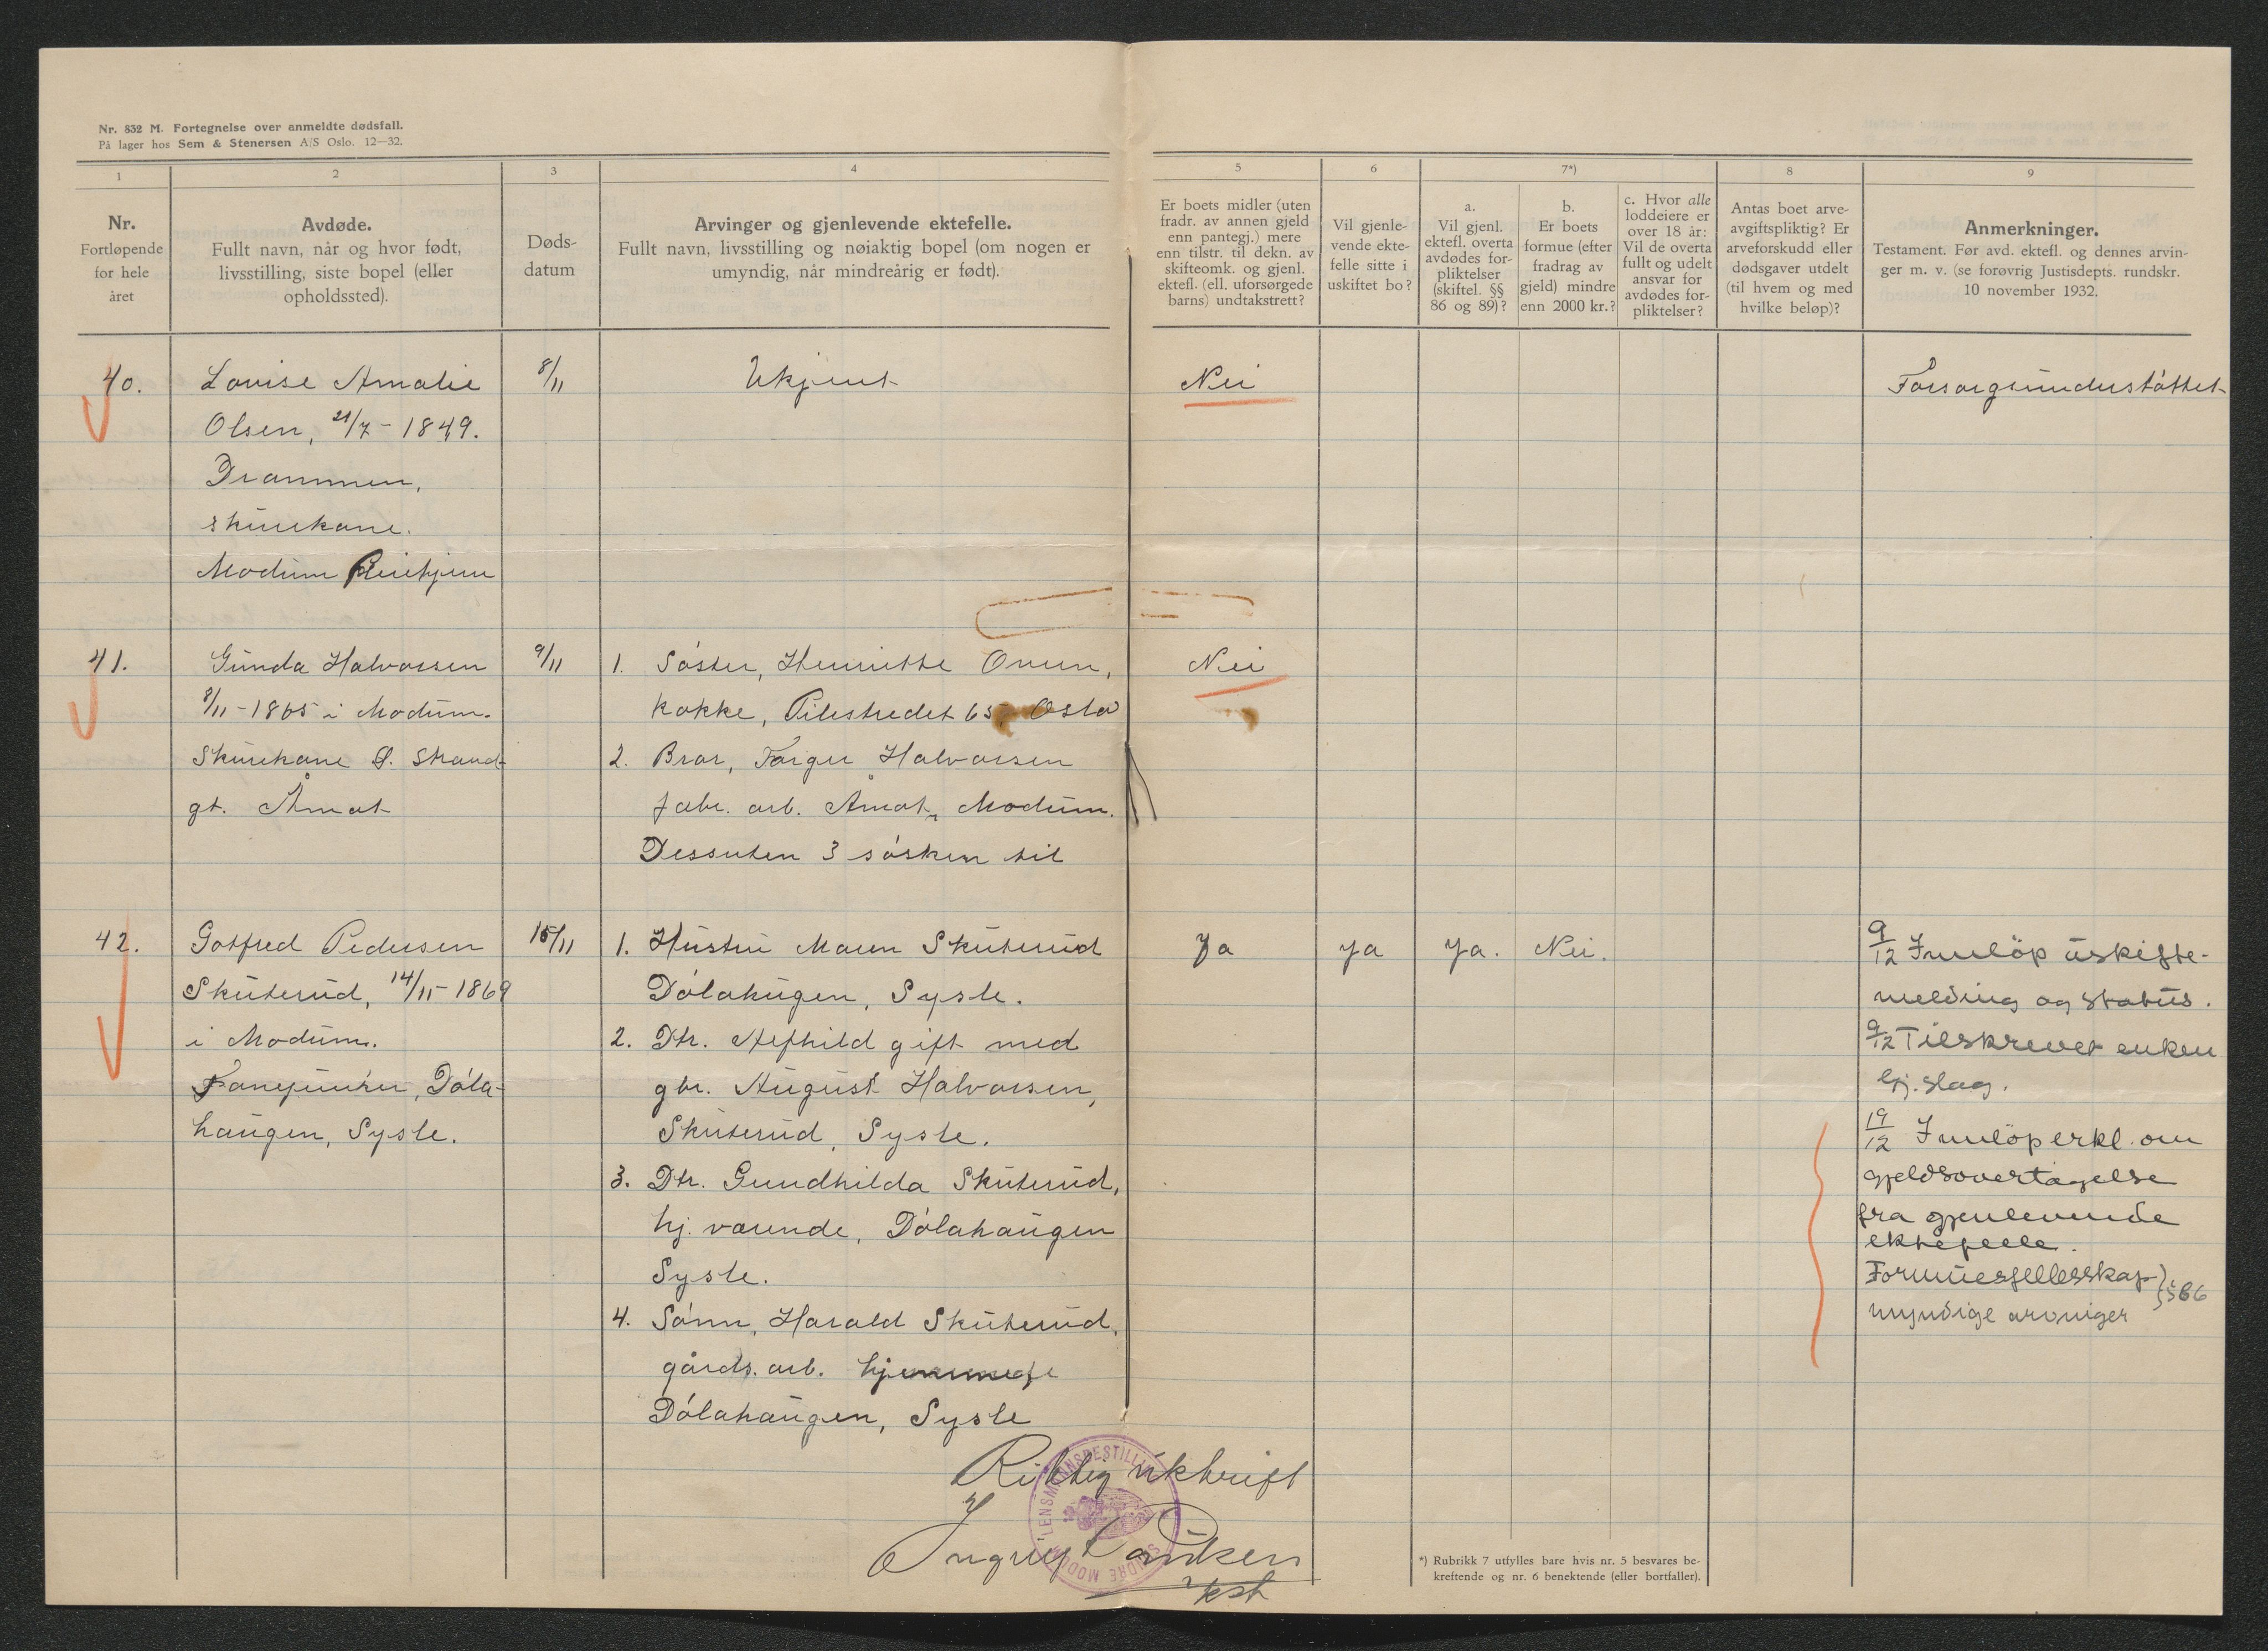 Nr. 832 M. Fortegnelse over anmeldte dødsfall.
På lager hos Sem & Stenersen A/S Oslo. 12—32.
1
2
3
4
5
6
7*)
8
9
Nr.
Fortløpende
for hele
året
Avdøde.
Fullt navn, når og hvor født,
livsstilling, siste bopel (eller
opholdssted).
Døds-
datum
Arvinger og gjenlevende ektefelle.
Fullt navn, livsstilling og nøiaktig bopel (om nogen er
umyndig, når mindreårig er født).
Er boets midler (uten
fradr. av annen gjeld
enn pantegj.) mere
enn tilstr. til dekn. av
skifteomk. og gjenl.
ektefl. (ell. uforsørgede
barns) undtakstrett?
Vil gjenle-
vende ekte-
felle sitte i
uskiftet bo?
a.
Vil gjenl.
ektefl. overta
avdødes for-
pliktelser
(skiftel. §§
86 og 89)?
b.
Er boets
formue (efter
fradrag av
gjeld) mindre
enn 2000 kr.?
c. Hvor alle
loddeiere er
over 18 år:
Vil de overta
fullt og udelt
ansvar for
avdødes for-
pliktelser?
Antas boet arve-
avgiftspliktig? Er
arveforskudd eller
dødsgaver utdelt
(til hvem og med
hvilke beløp)?
Anmerkninger.
Testament. Før avd. ektefl. og dennes arvin-
ger m. v. (se forøvrig Justisdepts. rundskr.
10 november 1932.
40.
Lovise Amalie
Olsen, 21/7 - 1849.
Drammen,
skurekone.
Modum Pleiehjem
8/11
Ukjent
Nei
Forsorgsunderstøttet
41.
Gunda Halvorsen
8/11 - 1865 i Modum.
Skurekone Ø. Strand-
gt. Åmot
9/11
1. Søster, Henriette Ovren,
kokke, Pilestredet 65, Oslo
2. Bror, Torger Halvorsen
fabr. arb. Åmot, Modum.
Dessuten 3 søsken til
Nei
42.
Gotfred Pedersen
Skuterud, 14/11 - 1869
i Modum.
Døla-
haugen, Sysle.
15/11
1. Hustru Maren Skuterud
Dølahaugen, Sysle.
2. Dtr. gift med
gbr. August Halvorsen,
Skuterud, Sysle.
3. Dtr. Gundhilda Skuterud,
hj. værende, Dølahaugen
Sysle.
4. Sønn, Harald Skuterud,
gårds. arb.
Dølahaugen, Sysle
Ja
Ja
Ja.
Nei.
9/12 Innløp uskifte-
melding og status.
9/12 Tilskrevet enken
19/12 Innløp erkl. om
gjeldsovertagelse
fra gjenlevende
ektefelle.
Formuesfellesskap
myndige arvinger
} § 86
Riktig utskrift
LENSMANNSBESTILLINGEN
MODUM
*) Rubrikk 7 utfylles bare hvis nr. 5 besvares be-
kreftende og nr. 6 benektende (eller bortfaller).